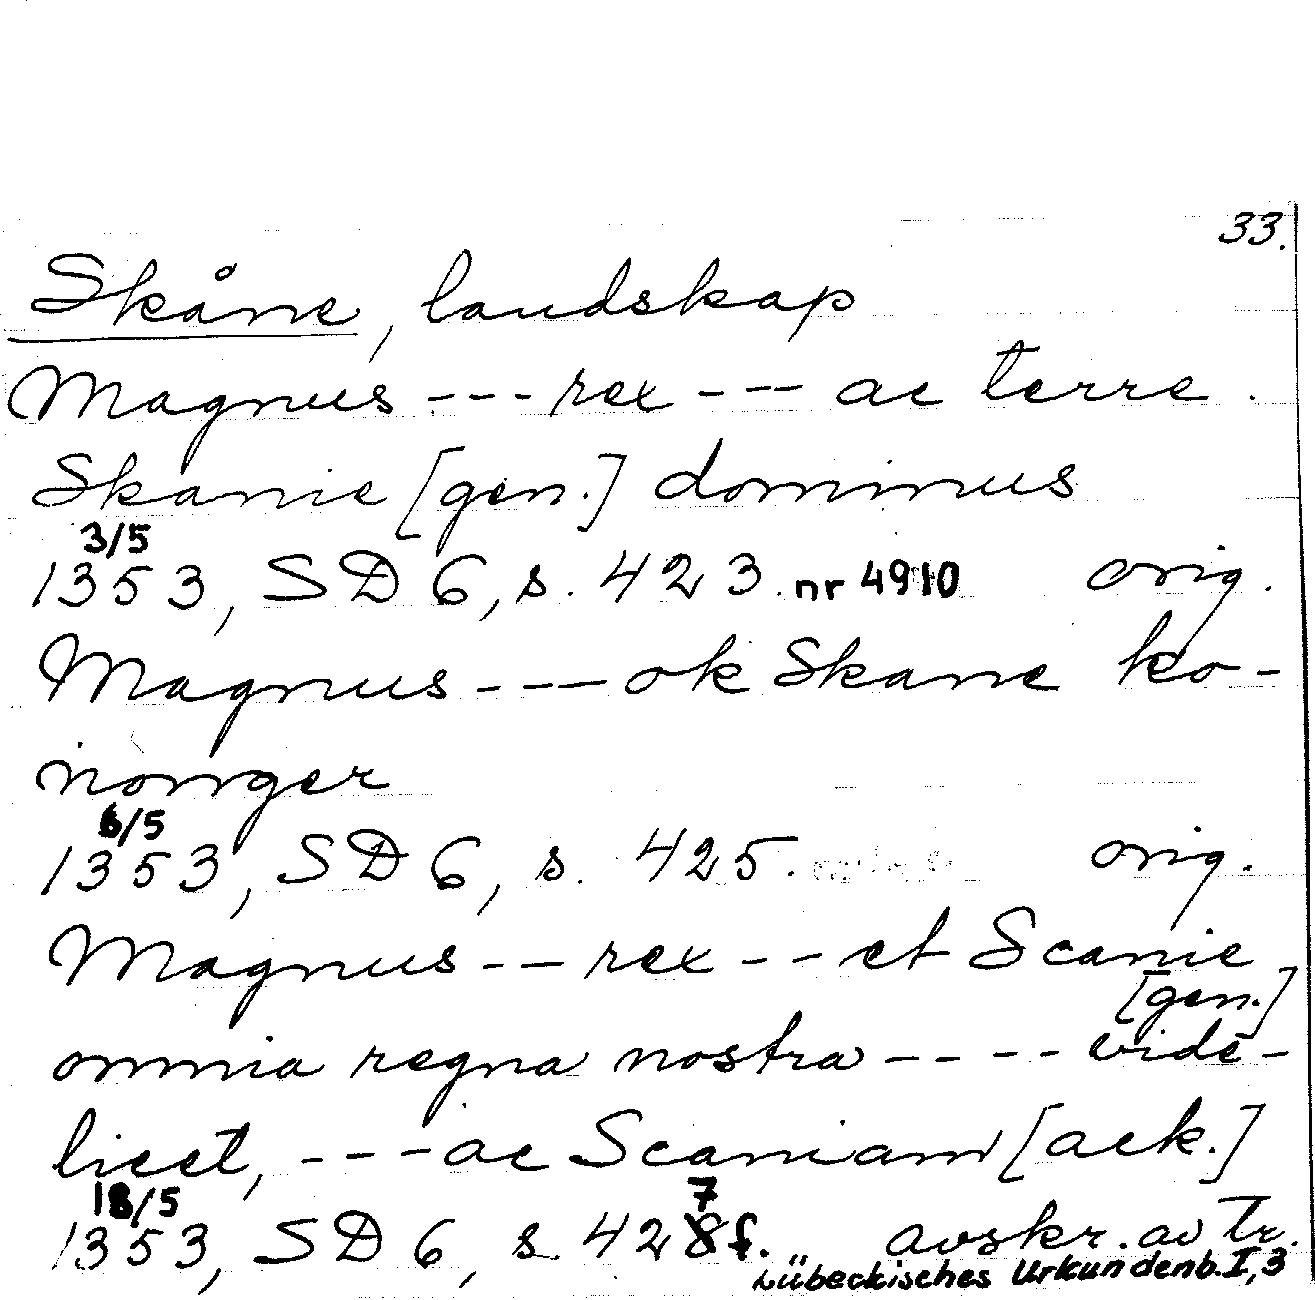 33.
Skåne, landskap
Magnus --- rex --- ac terre
Skanie [gen.] dominus
3/5
1353, SD 6, s. 423. nr 4910 orig.
Magnus --- ok Skane ko-
nonger
6/5
1353, SD 6, s. 425. orig.
Magnus -- rex -- et Scanie
[gen.]
omnia regna nostra ---- vide-
licet, --- ac Scaniam [ack.]
18/5 7
1353, SD 6, s. 428 f. avskr. av tr.
Lübeckisches Urkundenb. I, 3